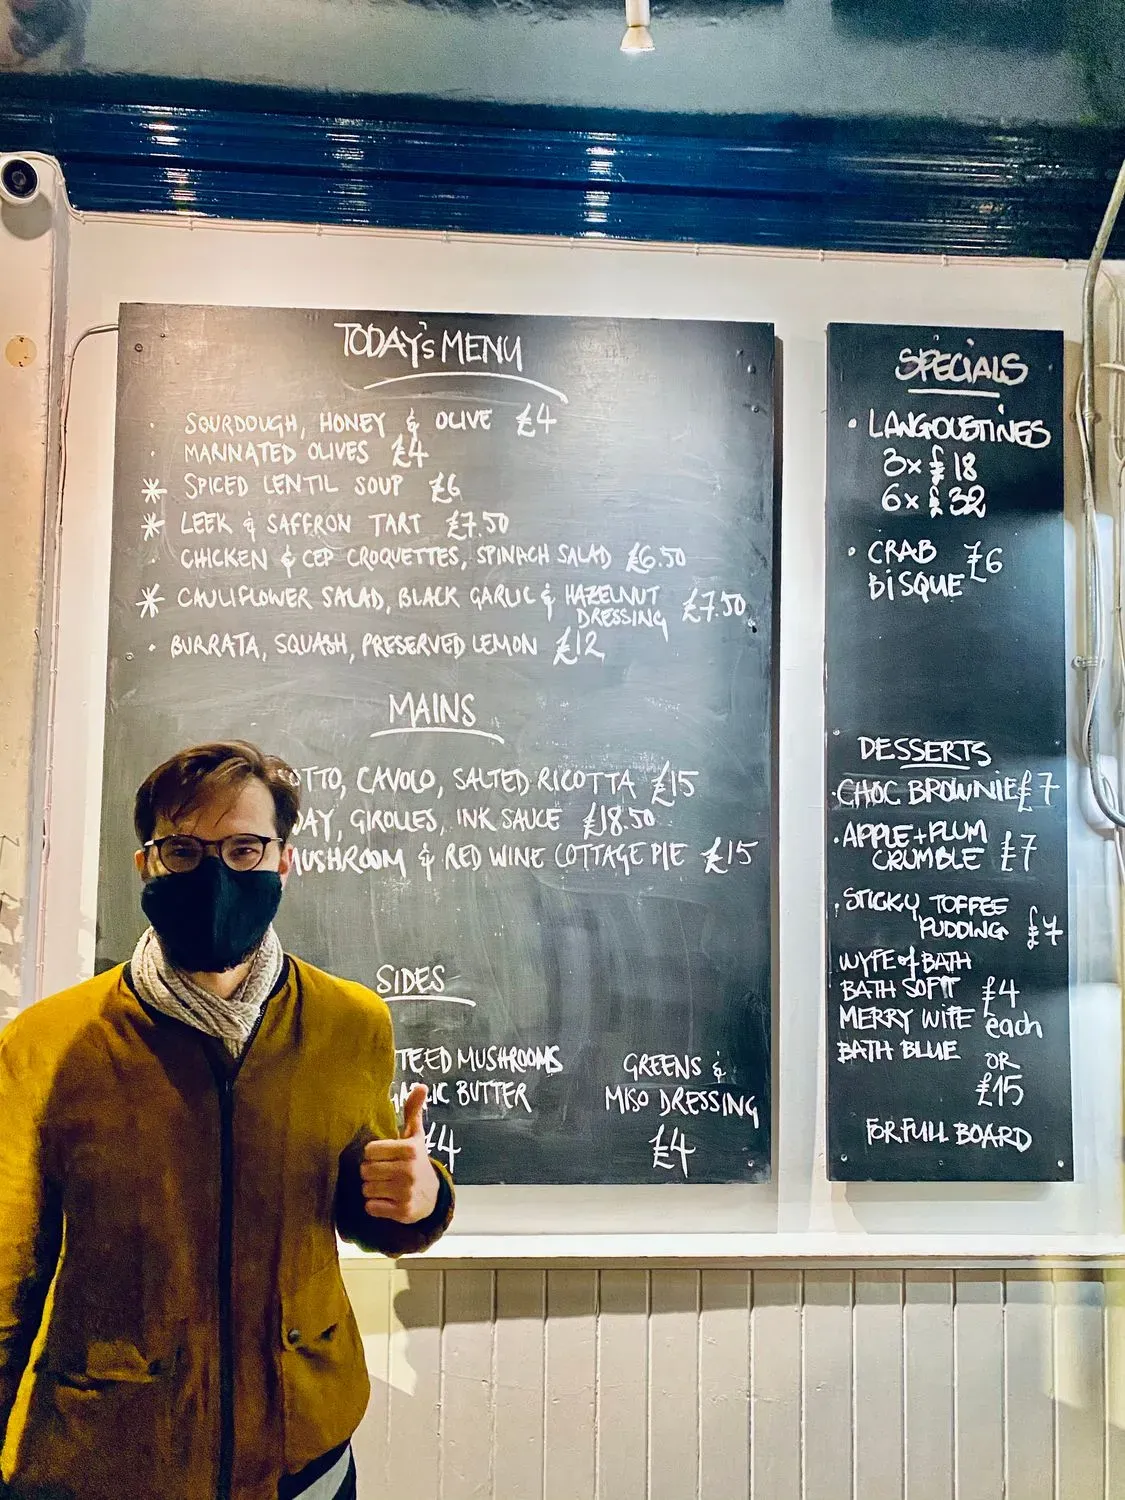 TODAY'S MENU
· SOURDOUGH, HONEY & OLIVE £4
· MARINATED OLIVES £4
* SPICED LENTIL SOUP £6
* LEEK & SAFFRON TART £7.50
· CHICKEN & CEP CROQUETTES, SPINACH SALAD £6.50
* CAULIFLOWER SALAD, BLACK GARLIC & HAZELNUT
DRESSING £7.50
· BURRATA, SQUASH, PRESERVED LEMON £12
MAINS
OTTO, CAVOLO, SALTED RICOTTA £15
DAY, GIROLLES, INK SAUCE £18.50
MUSHROOM & RED WINE COTTAGE PIE £15
SIDES
TEED MUSHROOMS
GARLIC BUTTER
£4
GREENS &
MISO DRESSING
£4
SPECIALS
· LANGOUSTINES
3x £18
6x £32
· CRAB £6
BISQUE
DESSERTS
· CHOC BROWNIE £7
· APPLE + PLUM
CRUMBLE £7
· STICKY TOFFEE
PUDDING £7
WYFE of BATH
BATH SOFT £4
MERRY WIFE each
BATH BLUE OR
£15
FOR FULL BOARD